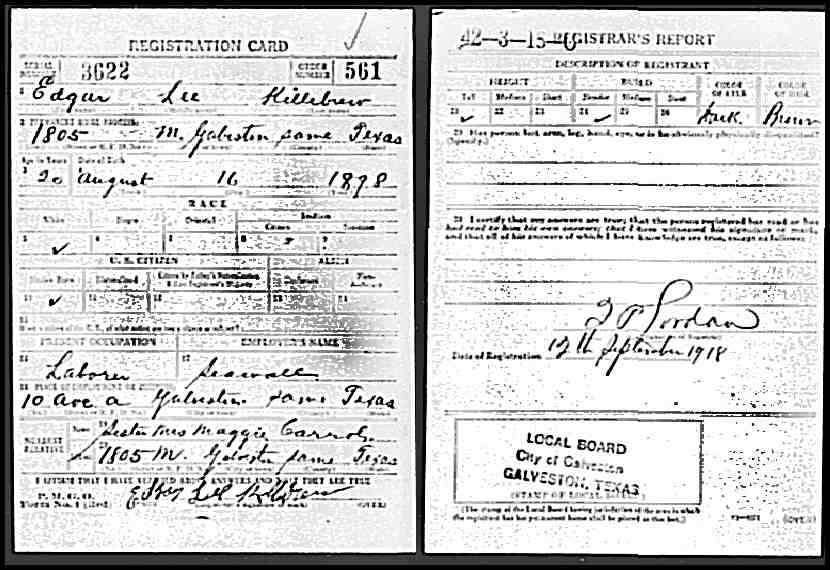 REGISTRATION CARD
SERIAL NUMBER 3622 ORDER NUMBER 561
1 Edgar Lee Killebrew
2 PERMANENT HOME ADDRESS:
1805 M. Galveston same Texas
Age in Years Date of Birth
20 August 16 1898
RACE
White Negro Oriental Indian
Citizen
5 ✓ 6 7 8 9
U. S. CITIZEN ALIEN
Native Born Naturalized
10 ✓ 11 12 13 14
15
PRESENT OCCUPATION EMPLOYER'S NAME
16 Laborer 17 Seawall
18 PLACE OF EMPLOYMENT OR BUSINESS:
10 Ave a Galveston same Texas
NEAREST RELATIVE Name 19 Sister Mrs Maggie Carroll
20 1805 M. Galveston same Texas
I AFFIRM THAT I HAVE VERIFIED ABOVE ANSWERS AND THAT THEY ARE TRUE
P. M. G. O.
Form No. 1 (Red) Edgar Lee Killebrew (OVER)
42-3-15-C REGISTRAR'S REPORT
DESCRIPTION OF REGISTRANT
HEIGHT BUILD COLOR OF EYES COLOR OF HAIR
Tall Medium Short Slender Medium Stout
21 ✓ 22 23 24 ✓ 25 26 Dark Brown
29 Has person lost arm, leg, hand, eye, or is he obviously physically disqualified?
(Specify.)
30 I certify that my answers are true; that the person registered has read or has
had read to him his own answers; that I have witnessed his signature or mark,
and that all of his answers of which I have knowledge are true, except as follows:
Date of Registration 12th September 1918
LOCAL BOARD
City of Galveston
GALVESTON, TEXAS
(STAMP OF LOCAL BOARD)
(The stamp of the Local Board having jurisdiction of the area in which
the registrant has his permanent home shall be placed in this box.)
(OVER)